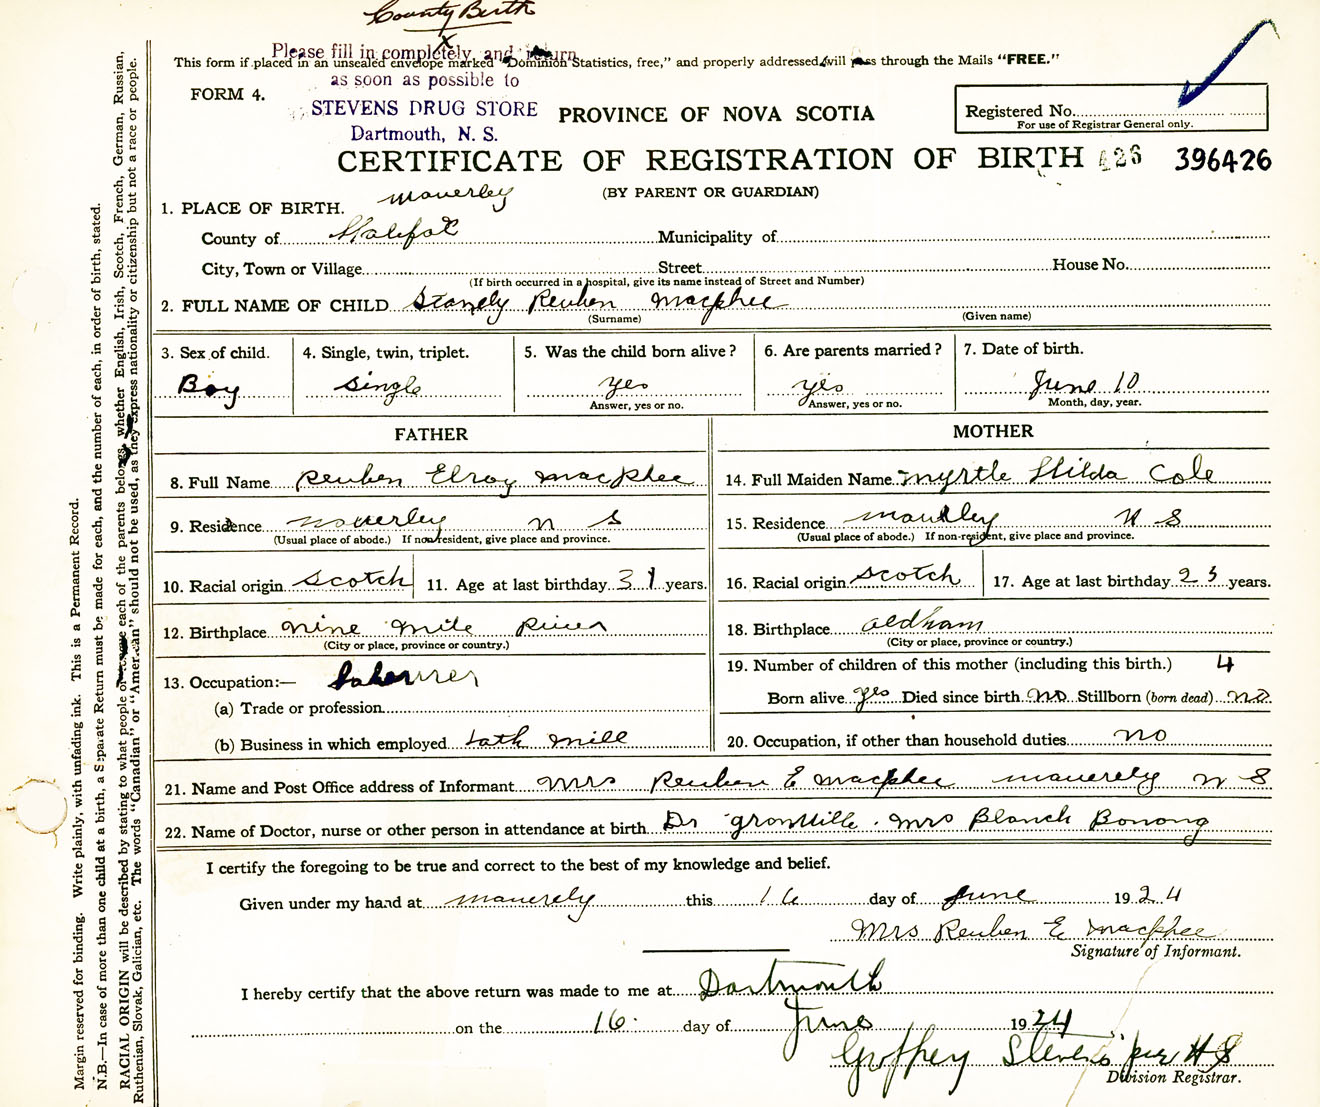 County Birth
x
Please fill in completely and return
This form if placed in an unsealed envelope marked "Dominion Statistics, free," and properly addressed, will pass through the Mails "FREE."
as soon as possible to
FORM 4.
STEVENS DRUG STORE
Dartmouth, N. S.
PROVINCE OF NOVA SCOTIA
Registered No.
For use of Registrar General only.
CERTIFICATE OF REGISTRATION OF BIRTH 426 396426
(BY PARENT OR GUARDIAN)
1. PLACE OF BIRTH. Waverley
County of Halifax Municipality of
City, Town or Village Street House No.
(If birth occurred in a hospital, give its name instead of Street and Number)
2. FULL NAME OF CHILD Stanely Reuben Macphee
(Surname) (Given name)
3. Sex of child. 4. Single, twin, triplet. 5. Was the child born alive? 6. Are parents married? 7. Date of birth.
Boy single yes yes June 10
Answer, yes or no. Answer, yes or no. Month, day, year.
FATHER MOTHER
8. Full Name Reuben Elroy MacPhee 14. Full Maiden Name Myrtle Hilda Cole
9. Residence Waverley N S 15. Residence Waverley N S
(Usual place of abode.) If non-resident, give place and province. (Usual place of abode.) If non-resident, give place and province.
10. Racial origin Scotch 11. Age at last birthday 31 years. 16. Racial origin Scotch 17. Age at last birthday 25 years.
12. Birthplace Nine Mile River 18. Birthplace Oldham
(City or place, province or country.) (City or place, province or country.)
13. Occupation:— 19. Number of children of this mother (including this birth.) 4
(a) Trade or profession Born alive yes Died since birth no Stillborn (born dead) no
(b) Business in which employed Lath Mill 20. Occupation, if other than household duties no
21. Name and Post Office address of Informant Mrs Reuben E Macphee Waverely N S
22. Name of Doctor, nurse or other person in attendance at birth Dr Granville. Mrs Blanch
I certify the foregoing to be true and correct to the best of my knowledge and belief.
Given under my hand at Waverely this 16 day of June 1924
Mrs Reuben E Macphee
Signature of Informant.
I hereby certify that the above return was made to me at Dartmouth
on the 16. day of June 1924
Stevens per H S
Division Registrar.
Margin reserved for binding. Write plainly, with unfading ink. This is a Permanent Record.
N.B.—In case of more than one child at a birth, a Separate Return must be made for each, and the number of each, in order of birth, stated.
RACIAL ORIGIN will be described by stating to what people or race each of the parents belongs, whether English, Irish, Scotch, French, German, Russian,
Ruthenian, Slovak, Galician, etc. The words "Canadian" or "American" should not be used, as they express nationality or citizenship but not a race or people.